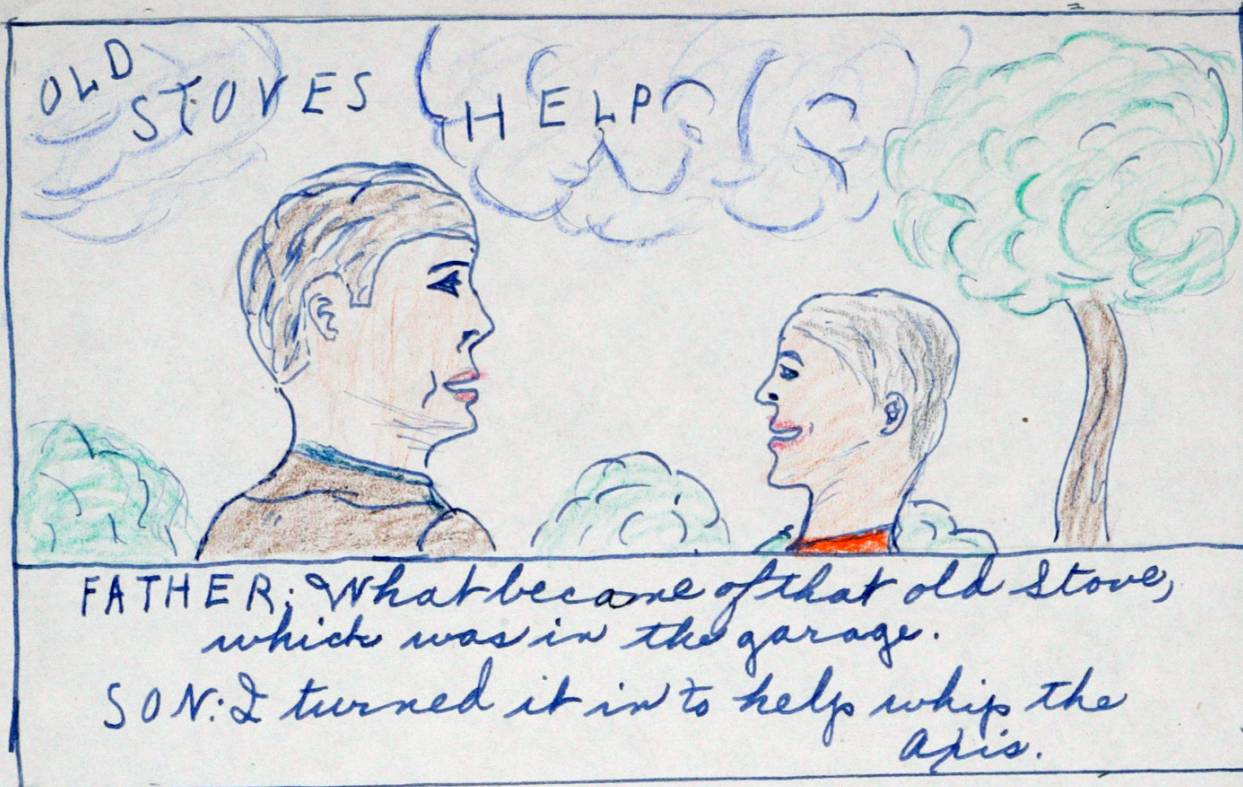 OLD STOVES HELP
FATHER; What became of that old Stove,
which was in the garage.
SON: I turned it in to help whip the
Axis.